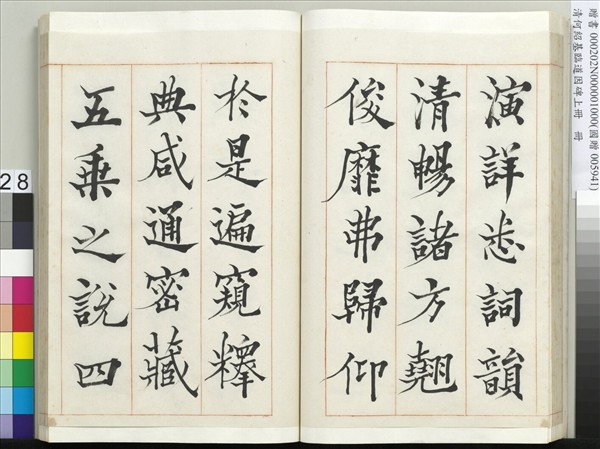 演詳悉詞韻
清暢諸方翹
俊靡弗歸仰
於是遍窺釋
典咸通密藏
五乘之說四
贈書 000202N000001000(國贈 005941)
清何紹基臨道因碑上冊 冊
28